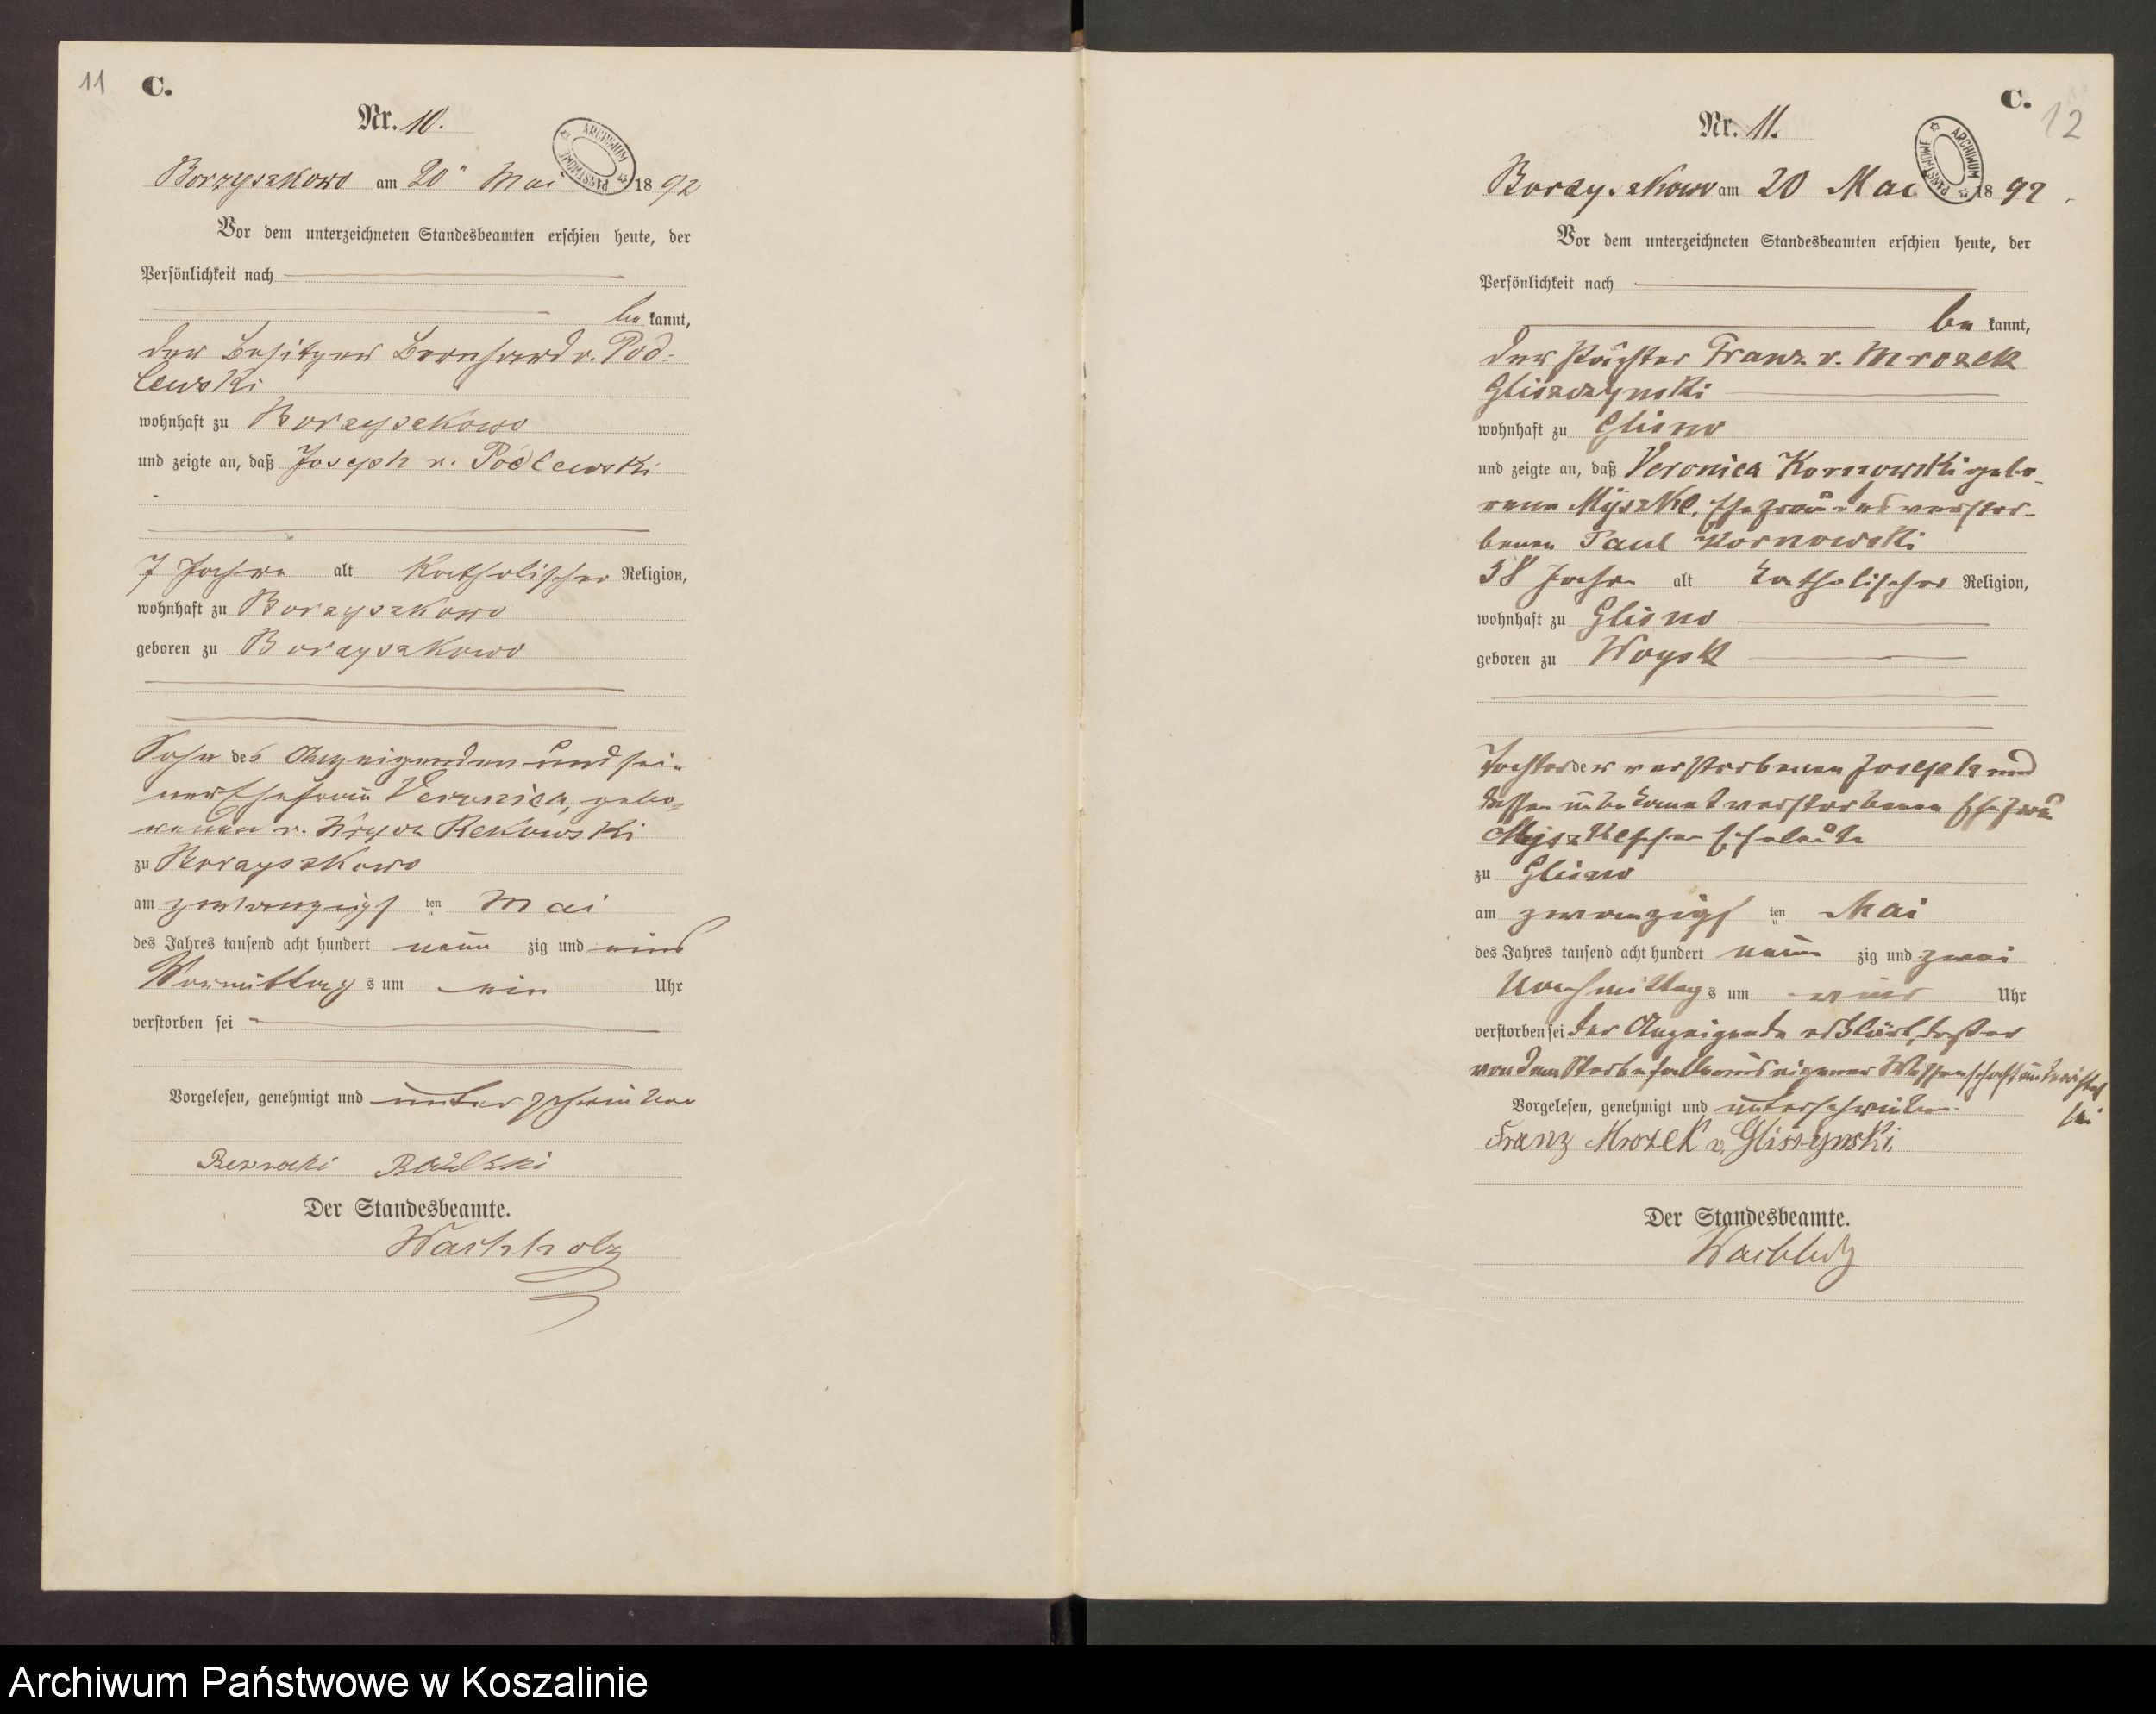 11 C.
Nr. 10.
ARCHIWUM PAŃSTWOWE
Borzyszkowo am 20" Mai 1892
Vor dem unterzeichneten Standesbeamten erschien heute, der
Persönlichkeit nach
be kannt,
der Besitzer Bernhard v. Pod-
lewski
wohnhaft zu Borzyszkowo
und zeigte an, daß Joseph v. Podlewski
7 Jahre alt Katholischer Religion,
wohnhaft zu Borzyszkowo
geboren zu Borzyszkowo
Sohn des Anzeigenden und sei-
ner Ehefrau Veronica, gebo-
renen v. Rekowski
zu Borzyszkowo
am zwanzigs ten Mai
des Jahres tausend acht hundert neun zig und
Vormittag s um ein Uhr
verstorben sei
Vorgelesen, genehmigt und unterschrieben
Der Standesbeamte.
Wachholz
C. 12
Nr. 11.
ARCHIWUM PAŃSTWOWE
Borzyszkowo am 20 Mai 1892.
Vor dem unterzeichneten Standesbeamten erschien heute, der
Persönlichkeit nach
be kannt,
der Pächter Franz v. Mrozek
Gliszczynski
wohnhaft zu Glisno
und zeigte an, daß Veronica Kornowski gebo-
rene Myszke, Ehefrau des verstor-
benen Paul Kornowski
58 Jahre alt katholischer Religion,
wohnhaft zu Glisno
geboren zu Woysk
Tochter der verstorbenen Joseph und
dessen unbekannt verstorbenen Ehefrau
Myszkeschen Eheleute
zu Glisno
am zwanzigs ten Mai
des Jahres tausend acht hundert neun zig und zwei
Nachmittag s um Uhr
verstorben sei der Anzeigende erklärt, daß er
von dem Sterbefalle aus eigener Wissenschaft unterrichtet
sei
Vorgelesen, genehmigt und unterschrieben
Franz Mrozek v. Gliszynski.
Der Standesbeamte.
Wachholz
Archiwum Państwowe w Koszalinie